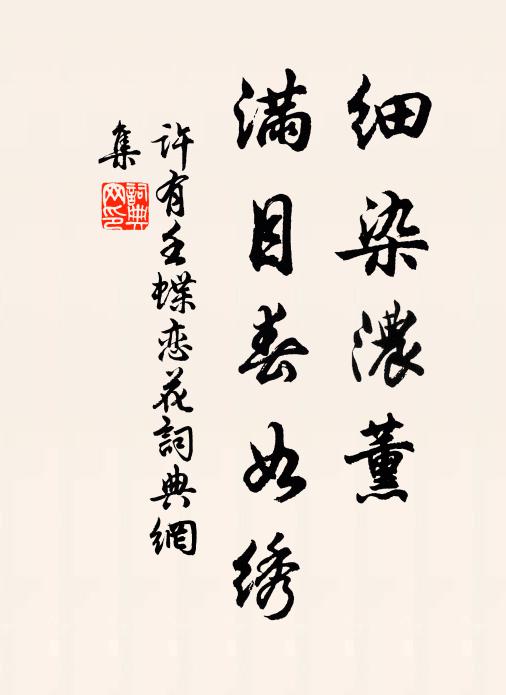 细染濃薰
满目春如绣
许有壬蝶恋花詞典網
集
詞典
网印